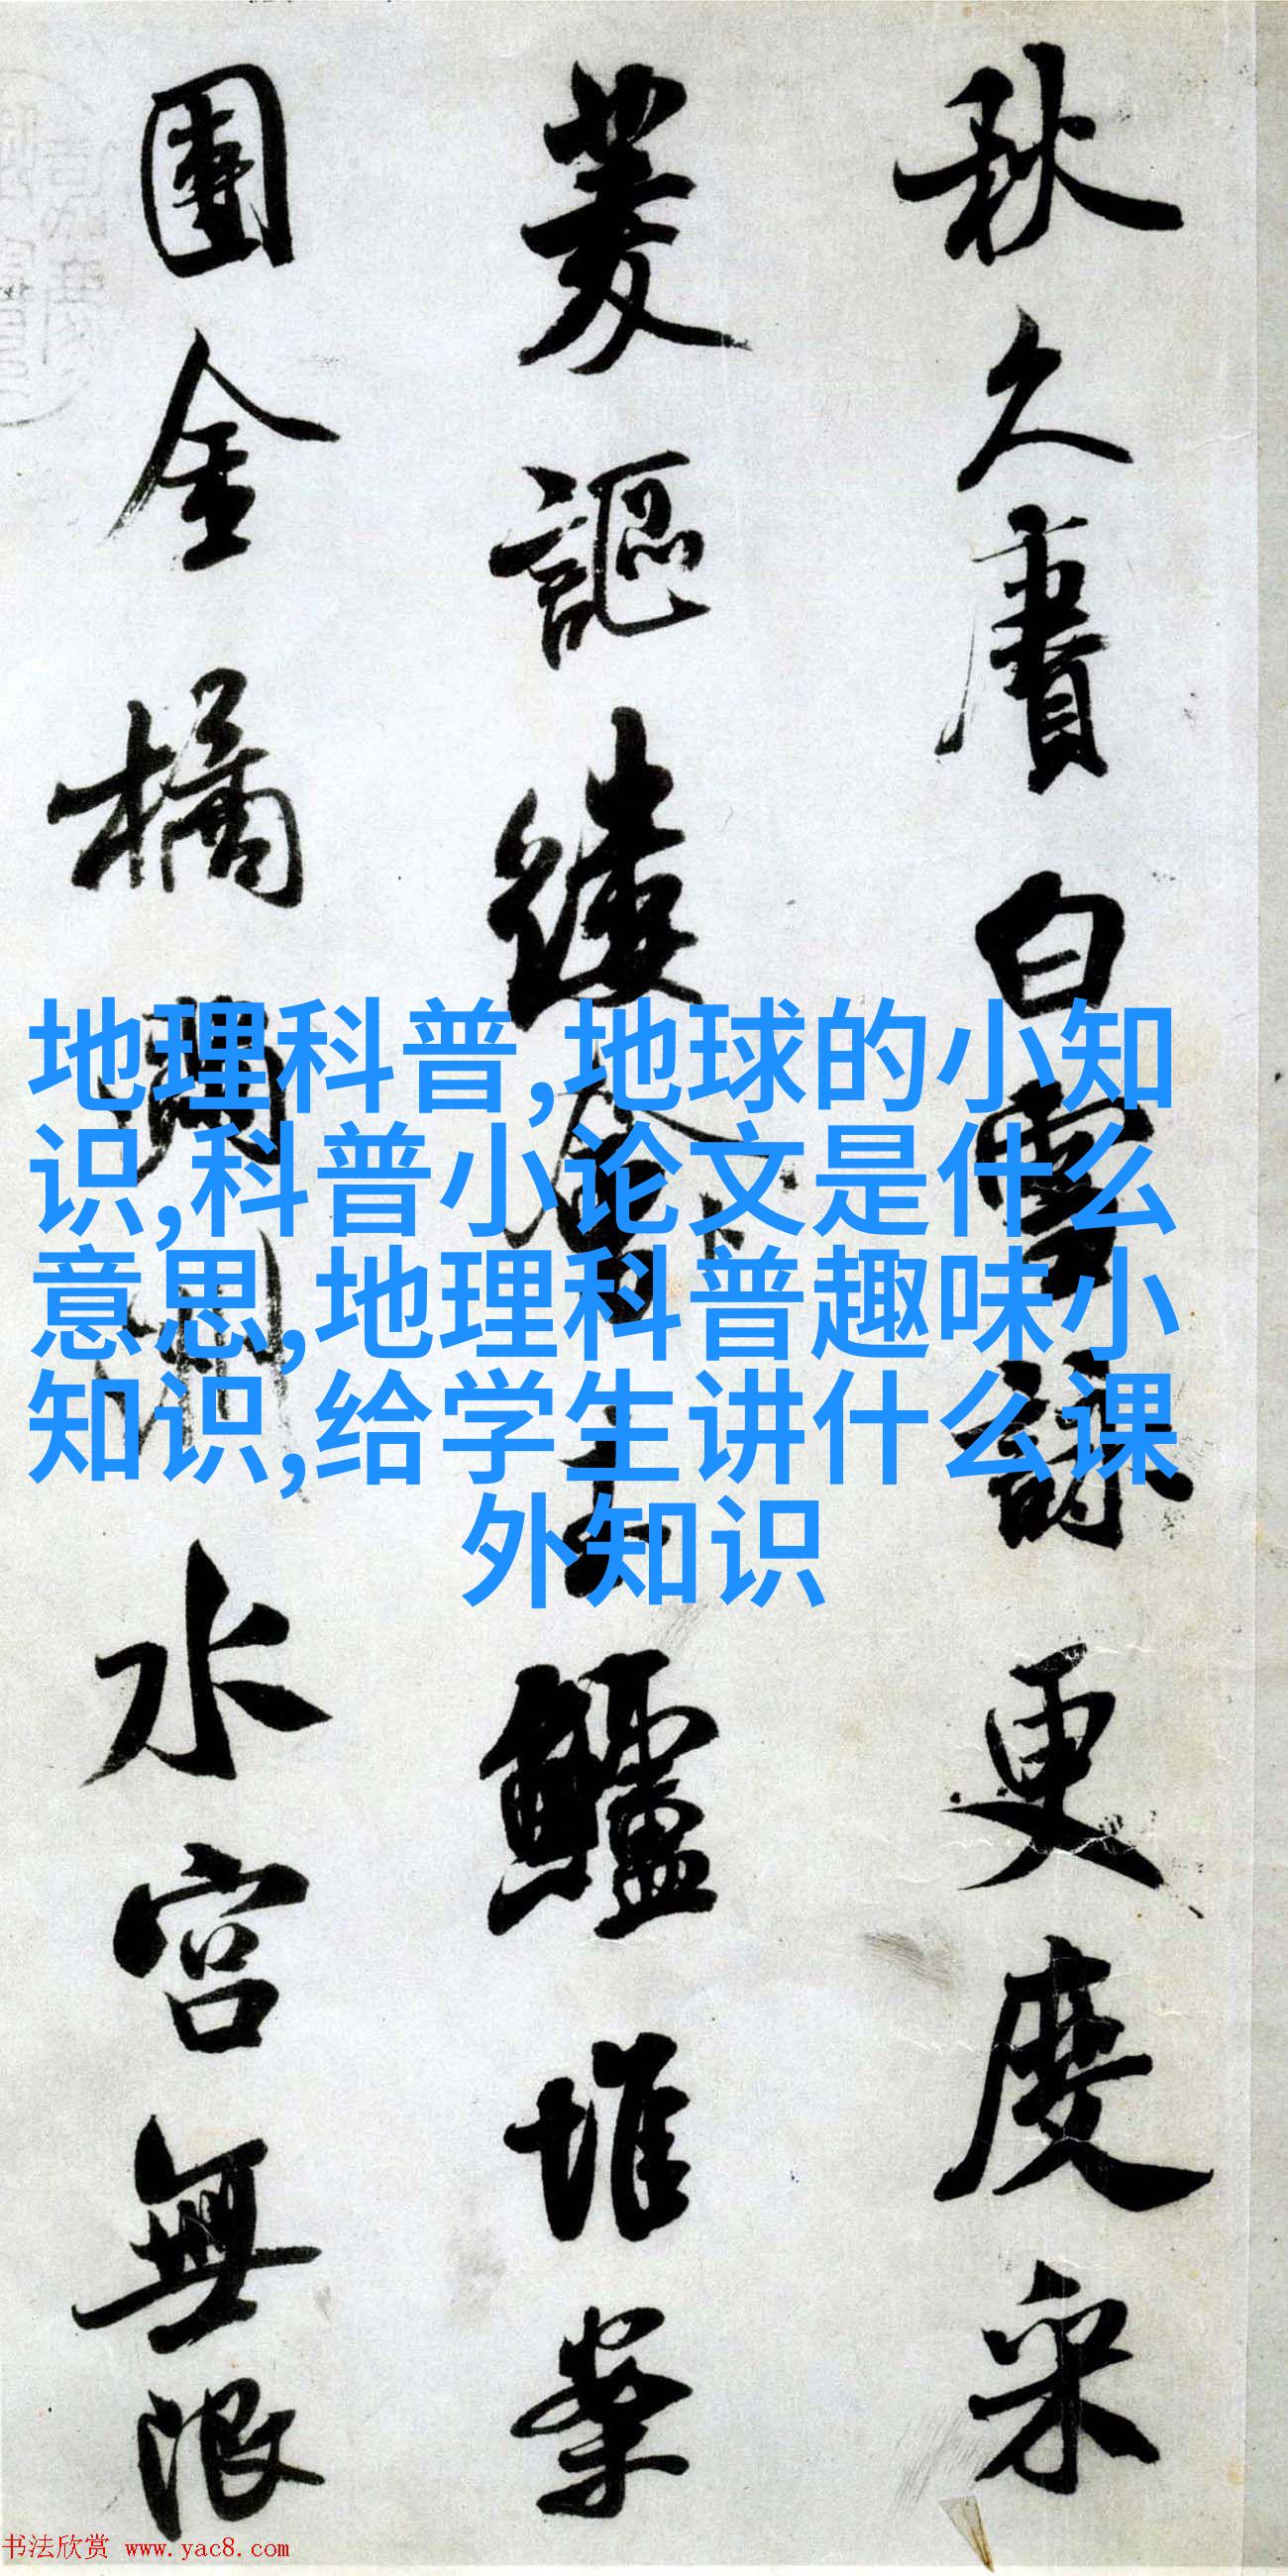 秋久賡白雪詠更度采
菱謳縷會玉鱸堆案
團金橘滿洲水宮無限
地理科普,地球的小知
识,科普小论文是什么
意思,地理科普趣味小
知识,给学生讲什么课
外知识
书法欣赏 www.yac8.com